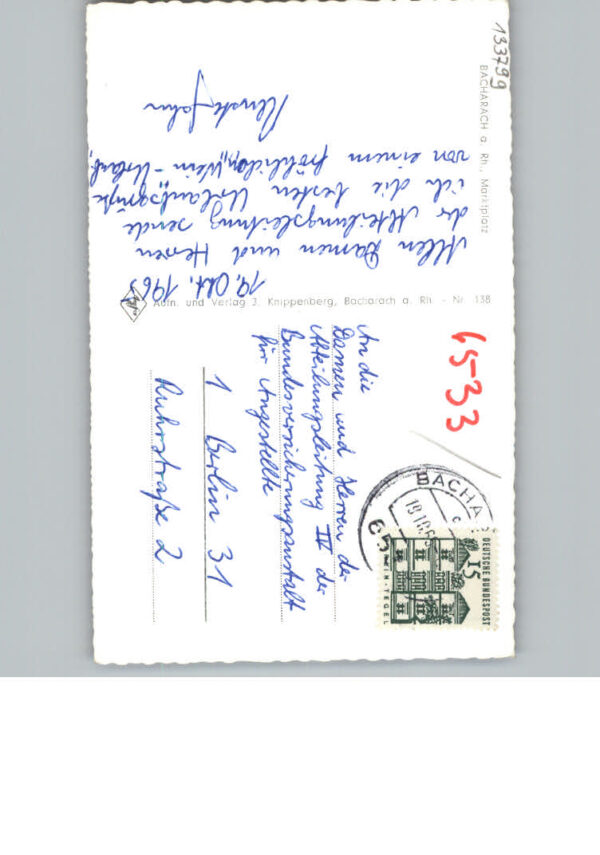 133799
BACHARACH a. Rh., Marktplatz
19. Okt. 1965
Allen Damen und Herren
der Abteilungsleitung sende
ich die besten Urlaubsgrüße
von einem fröhlichen „Wein-Urlaub“.
Aufn. und Verlag J. Knippenberg, Bacharach a. Rh. - Nr. 138
65-33
BACHA
18.10.65
DEUTSCHE BUNDESPOST
15
TEGEL
An die
Damen und Herren der
Abteilungsleitung IV der
Bundesversicherungsanstalt
für Angestellte
1 Berlin 31
Ruhrstraße 2